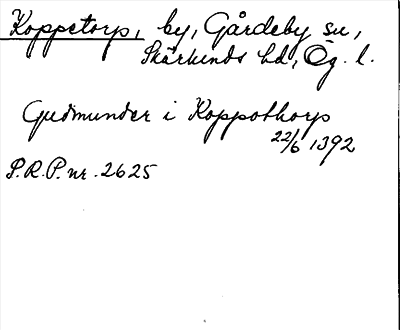 Koppetorp, by, Gårdeby sn,
Skärkinds hd, Ög. l.
Gudmunder i Koppothorp
22/6 1392
P.R.P. nr. 2625